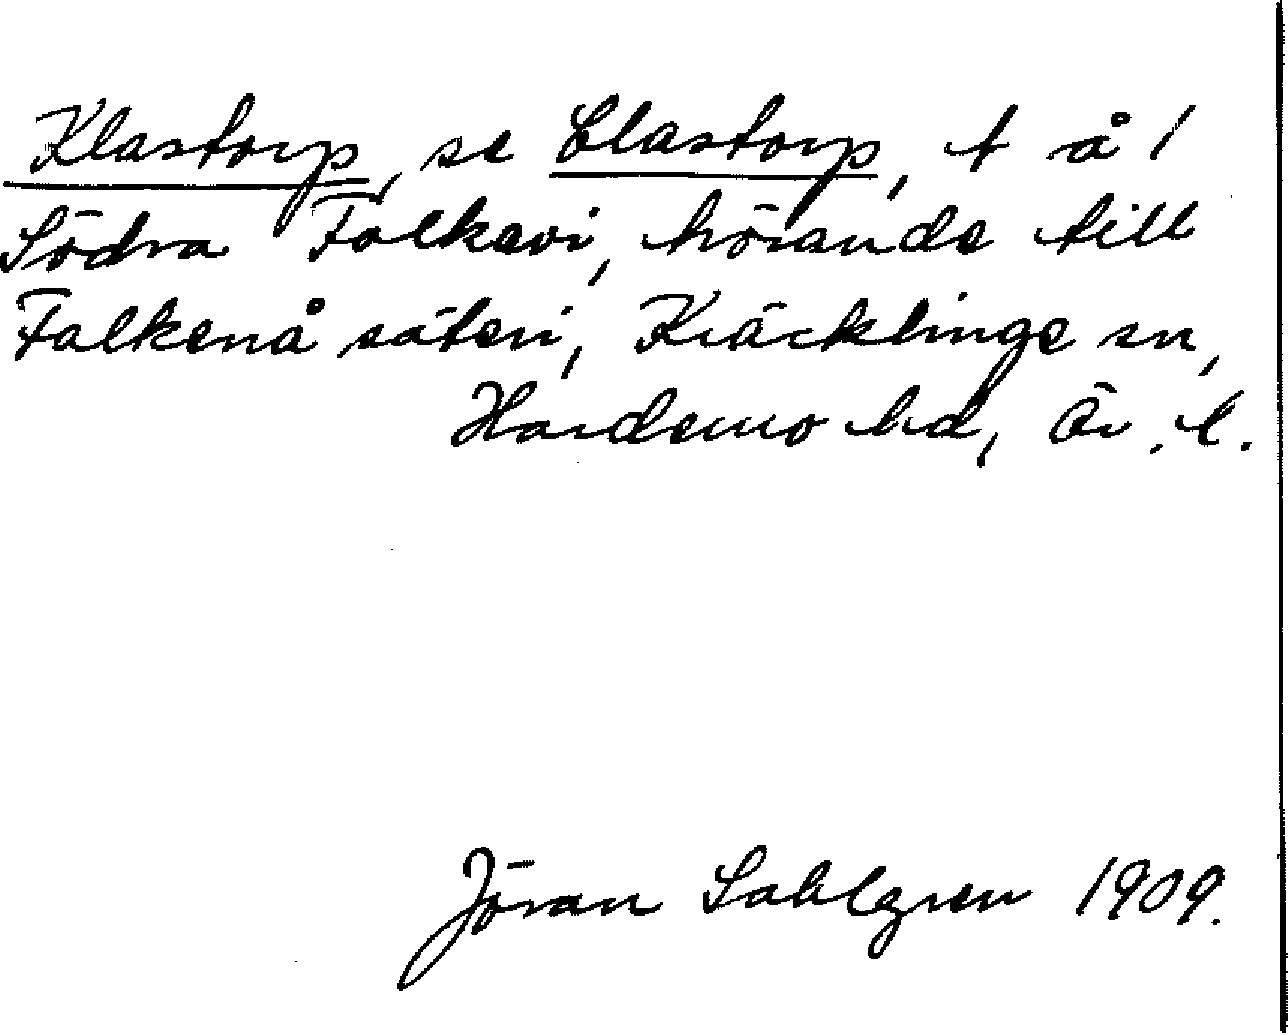 Klastorp, se Clastorp, t å 1
Södra Falkevi, hörande till
Falkenå säteri, Kräcklinge sn,
Hardemo hd, Ör. l.
Jöran Sahlgren 1909.